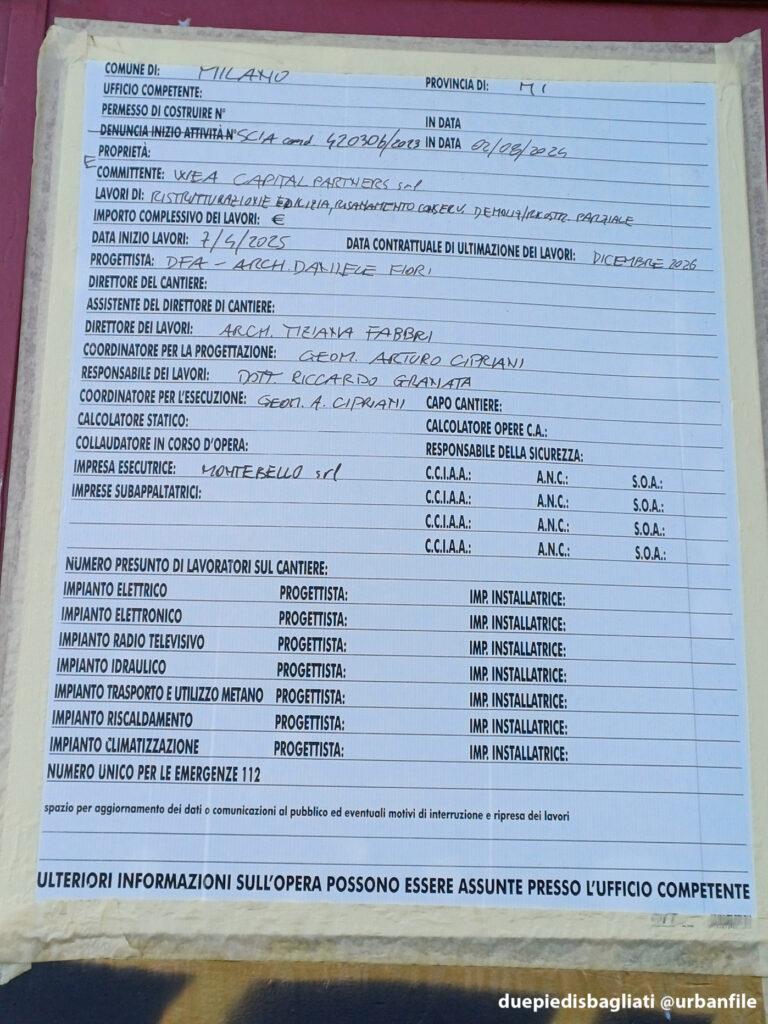 COMUNE DI: MILANO PROVINCIA DI: MI
UFFICIO COMPETENTE:
PERMESSO DI COSTRUIRE N° IN DATA
DENUNCIA INIZIO ATTIVITÀ N° SCIA cond 420306/2023 IN DATA 02/08/2024
PROPRIETÀ:
E COMMITTENTE: WEA CAPITAL PARTNERS srl
LAVORI DI: RISTRUTTURAZIONE EDILIZIA, RISANAMENTO CONSERV. DEMOLIZ/RICOSTR. PARZIALE
IMPORTO COMPLESSIVO DEI LAVORI: €
DATA INIZIO LAVORI: 7/4/2025 DATA CONTRATTUALE DI ULTIMAZIONE DEI LAVORI: DICEMBRE 2026
PROGETTISTA: DFA - ARCH. DANIELE FIORI
DIRETTORE DEL CANTIERE:
ASSISTENTE DEL DIRETTORE DI CANTIERE:
DIRETTORE DEI LAVORI: ARCH. TIZIANA FABBRI
COORDINATORE PER LA PROGETTAZIONE: GEOM. ARTURO CIPRIANI
RESPONSABILE DEI LAVORI: DOTT. RICCARDO GRANATA
COORDINATORE PER L'ESECUZIONE: GEOM. A. CIPRIANI CAPO CANTIERE:
CALCOLATORE STATICO: CALCOLATORE OPERE C.A.:
COLLAUDATORE IN CORSO D'OPERA: RESPONSABILE DELLA SICUREZZA:
IMPRESA ESECUTRICE: MONTEBELLO srl C.C.I.A.A.: A.N.C.: S.O.A.:
IMPRESE SUBAPPALTATRICI: C.C.I.A.A.: A.N.C.: S.O.A.:
C.C.I.A.A.: A.N.C.: S.O.A.:
C.C.I.A.A.: A.N.C.: S.O.A.:
NUMERO PRESUNTO DI LAVORATORI SUL CANTIERE:
IMPIANTO ELETTRICO PROGETTISTA: IMP. INSTALLATRICE:
IMPIANTO ELETTRONICO PROGETTISTA: IMP. INSTALLATRICE:
IMPIANTO RADIO TELEVISIVO PROGETTISTA: IMP. INSTALLATRICE:
IMPIANTO IDRAULICO PROGETTISTA: IMP. INSTALLATRICE:
IMPIANTO TRASPORTO E UTILIZZO METANO PROGETTISTA: IMP. INSTALLATRICE:
IMPIANTO RISCALDAMENTO PROGETTISTA: IMP. INSTALLATRICE:
IMPIANTO CLIMATIZZAZIONE PROGETTISTA: IMP. INSTALLATRICE:
NUMERO UNICO PER LE EMERGENZE 112
spazio per aggiornamento dei dati o comunicazioni al pubblico ed eventuali motivi di interruzione e ripresa dei lavori
ULTERIORI INFORMAZIONI SULL'OPERA POSSONO ESSERE ASSUNTE PRESSO L'UFFICIO COMPETENTE
duepiedisbagliati @urbanfile